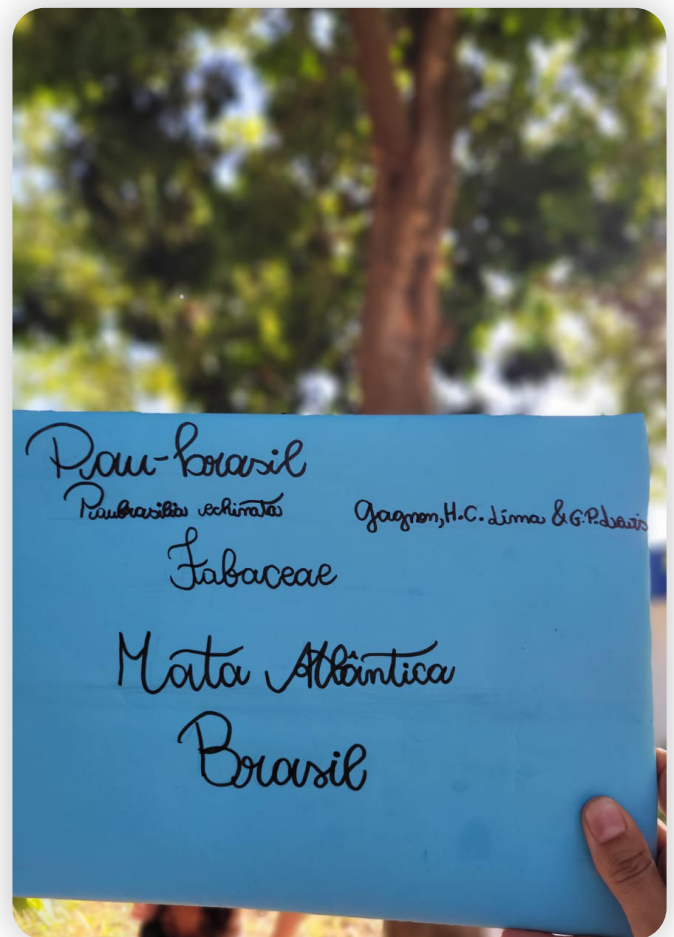 Pau-brasil
Paubrasilia echinata Gagnon, H.C. Lima & G.P. Lewis
Fabaceae
Mata Atlântica
Brasil